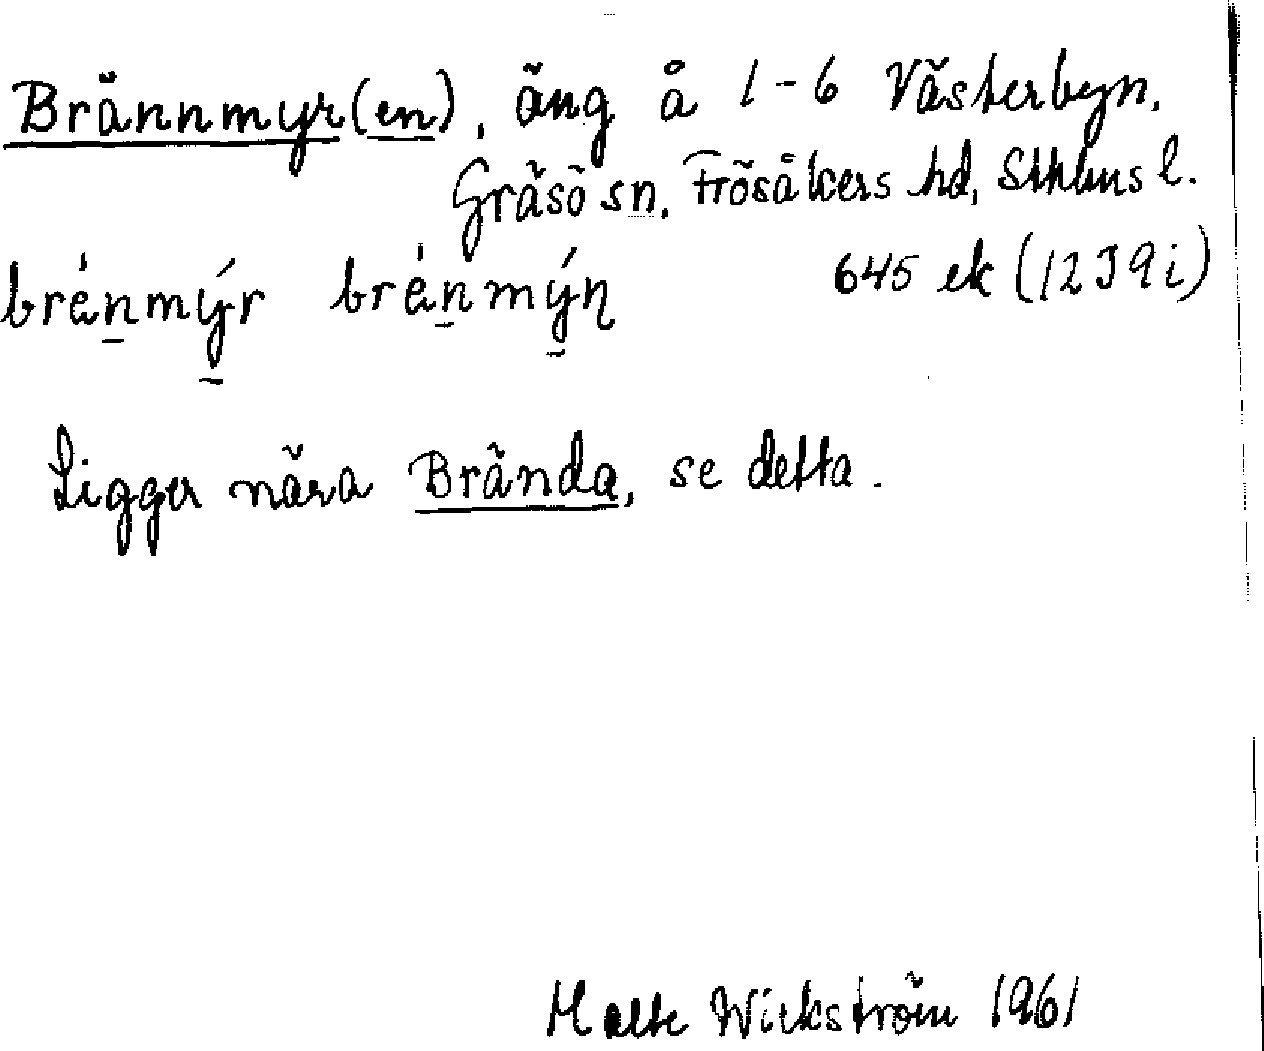 Brännmyr(en), äng å 1-6 Västerbyn,
Gräsö sn, Frösåkers hd, Sthlms l.
brénmýr brénmýn 645 ek (1239i)
Ligger nära Brända, se detta.
Malte Wickström 1961